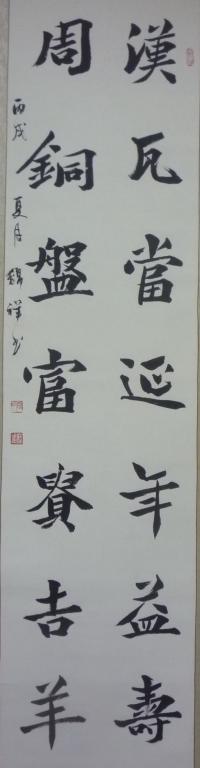 漢瓦當延年益壽
周銅盤富貴吉羊
丙戌夏月 祥书